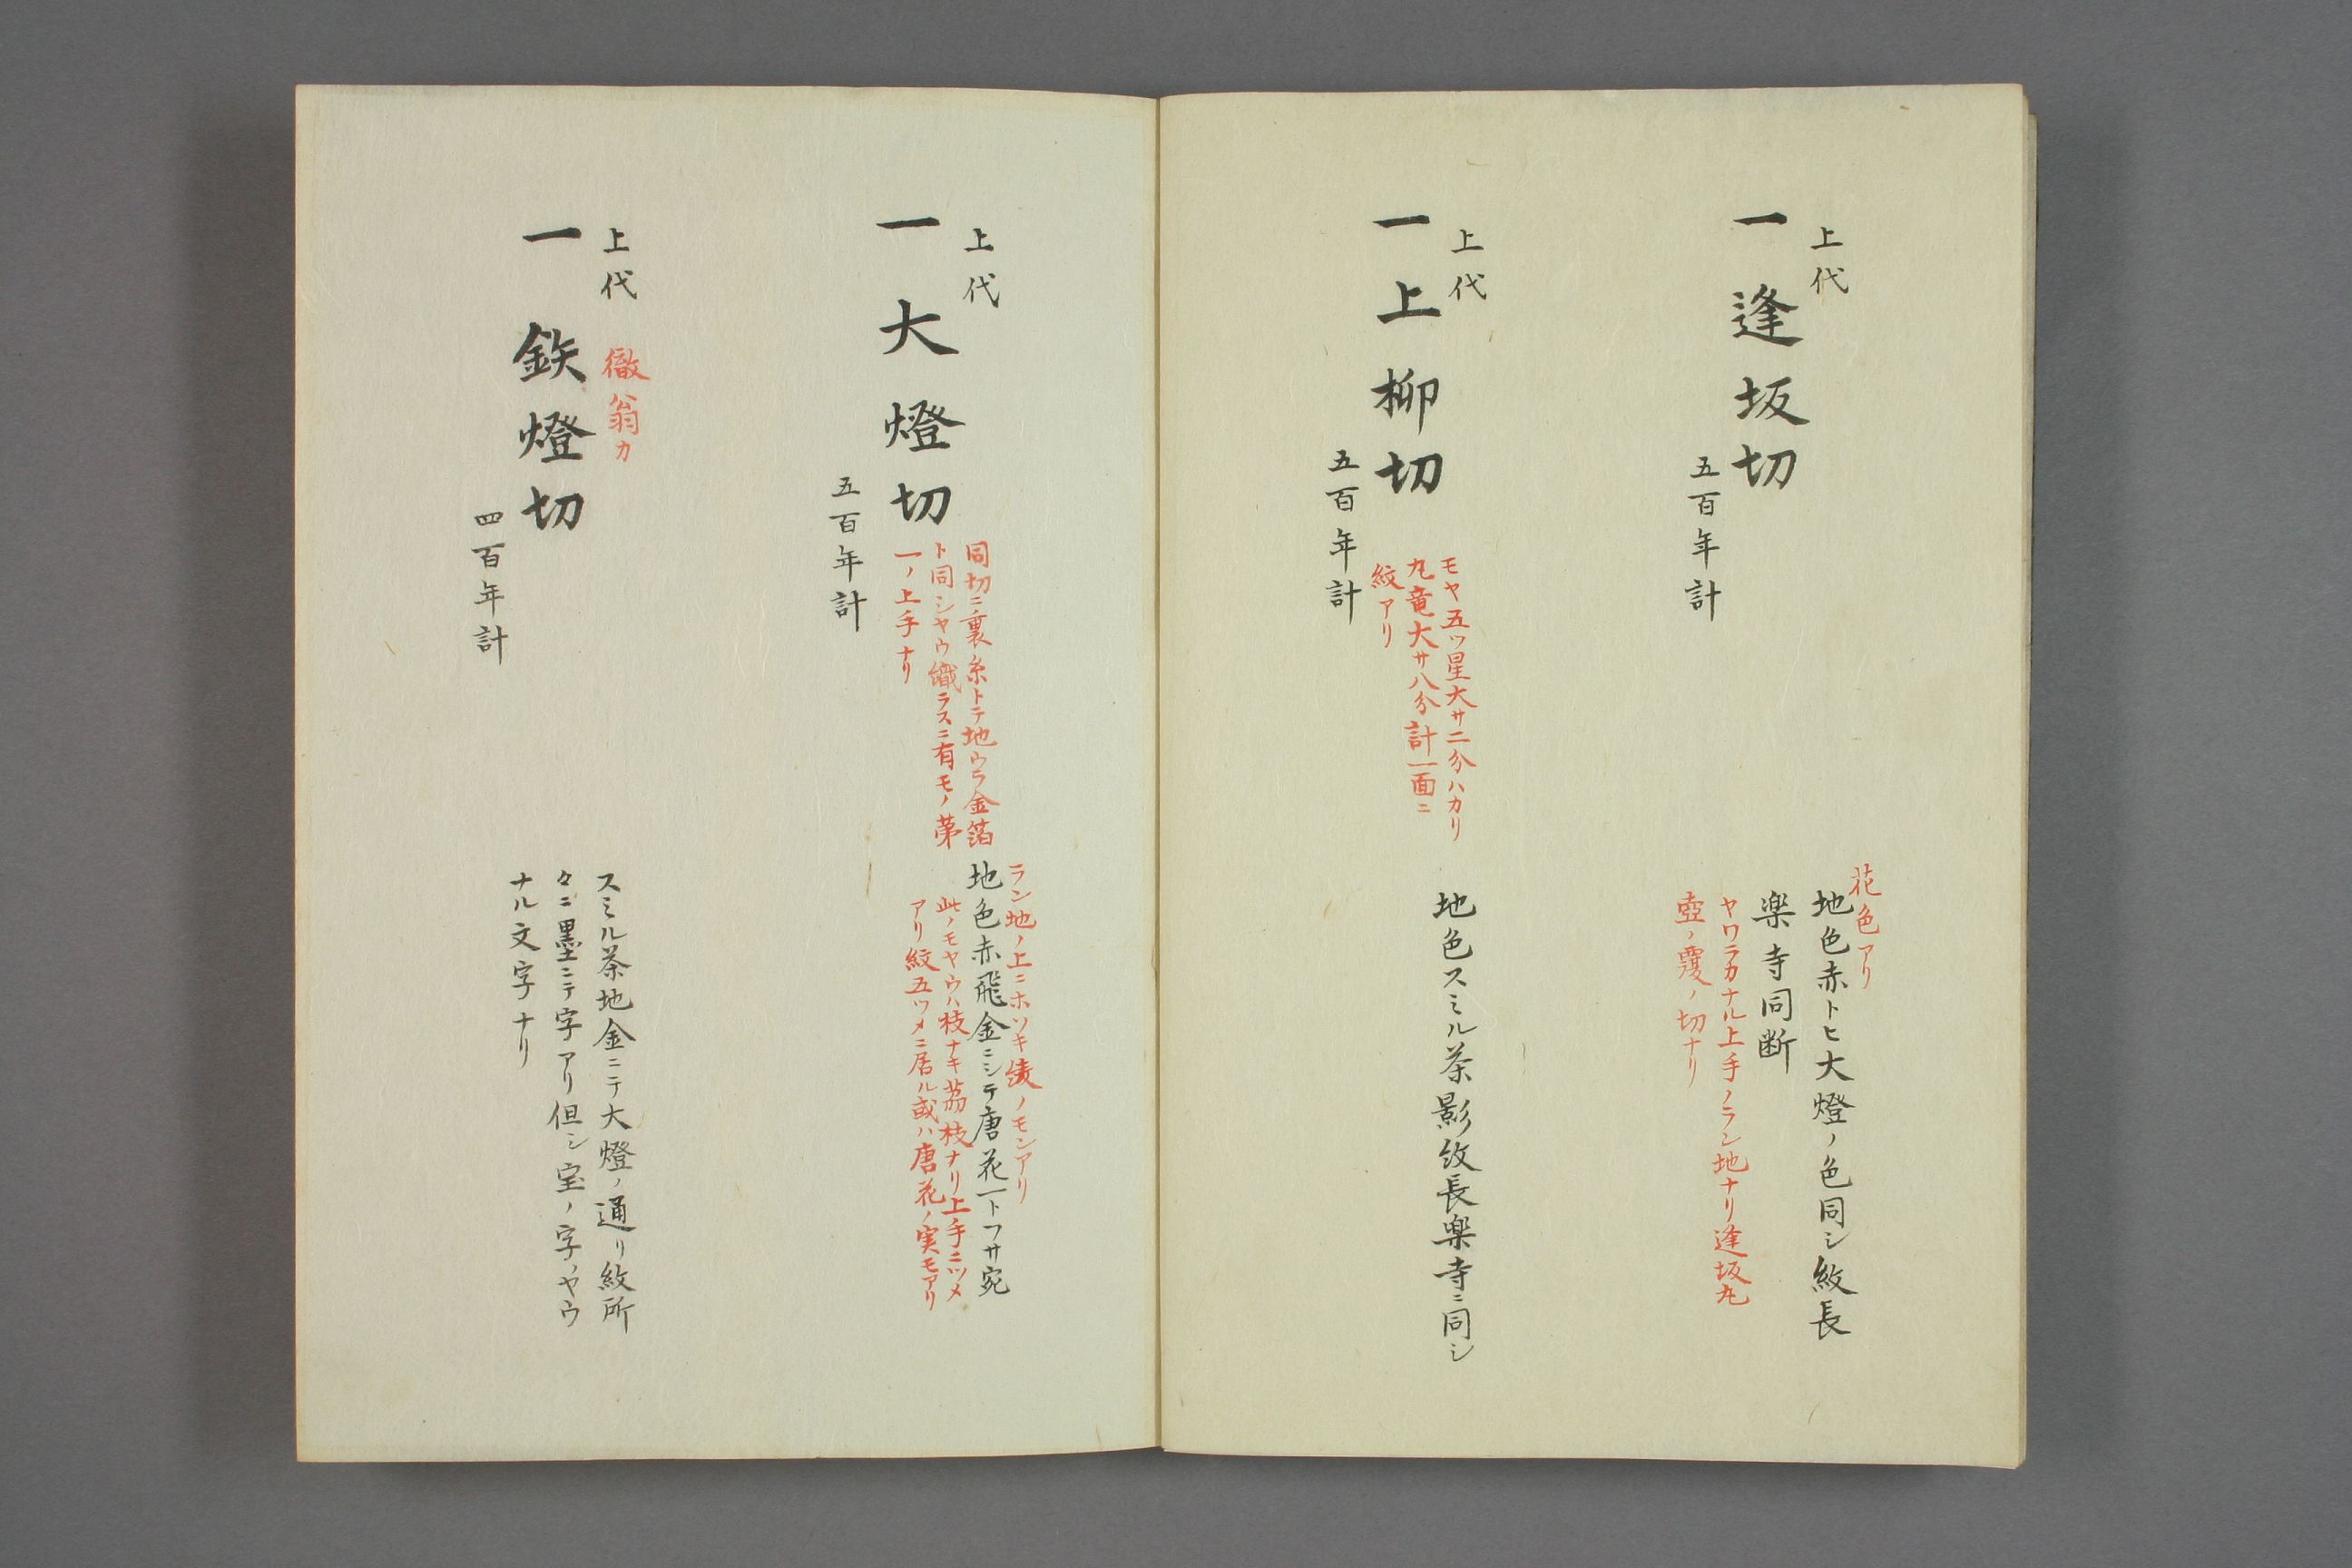 上代
一 逢坂切
五百年計
花色アリ
地色赤トヒ大燈ノ色同シ紋長
楽寺同断
ヤワラカナル上手ノラン地ナリ逢坂丸
壺ノ覆ノ切ナリ
上代
一 上柳切
五百年計
モヤ五ツ星大サ二分ハカリ
丸竜大サ八分計一面ニ
紋アリ
地色スミル茶影紋長楽寺ニ同シ
上代
一 大燈切
五百年計
同切ニ裏糸トテ地ウラ金箔
ト同シヤウ織ラスニ有モノ第
一ノ上手ナリ
ラン地ノ上ニホソキ綾ノモンアリ
地色赤飛金ニシテ唐花一トフサ宛
此ノモヤウハ枝ナキ茘枝ナリ上手ニツメ
アリ紋五ツメニ居ル或ハ唐花ノ実モアリ
上代
徹翁カ
一 鉄燈切
四百年計
スミル茶地金ニテ大燈ノ通リ紋所
々ニ墨ニテ字アリ但シ宝ノ字ノヤウ
ナル文字ナリ